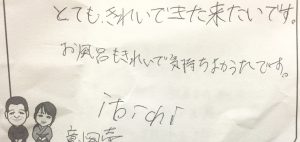 とても、きれいできた来たいです。
お風呂もきれいで気持ちよかったです。